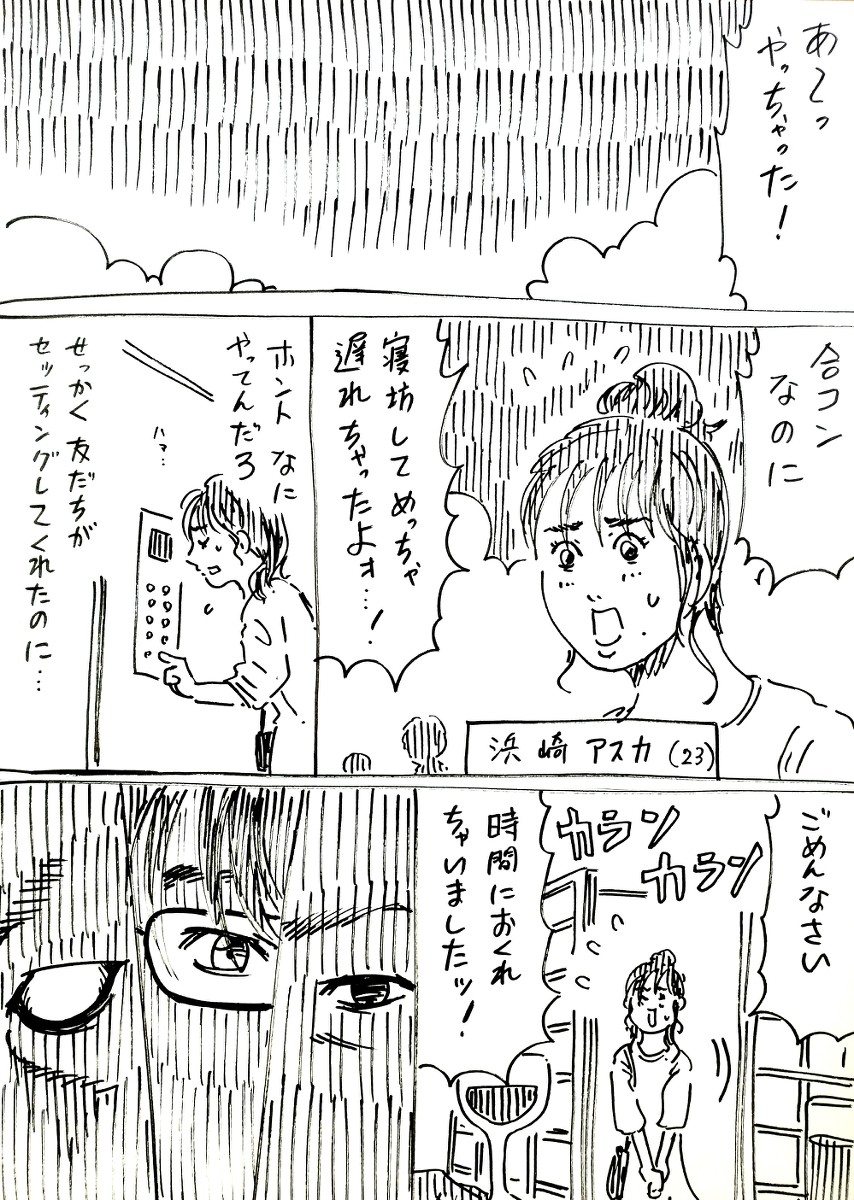 あ〜っ
やっちゃった!
合コン
なのに
寝坊してめっちゃ
遅れちゃったよォ…!
浜崎アスカ(23)
ホント なに
やってんだろ
ハァ…
せっかく友だちが
セッティングしてくれたのに…
ごめんなさい
カラン
カラン
時間におくれ
ちゃいましたッ!